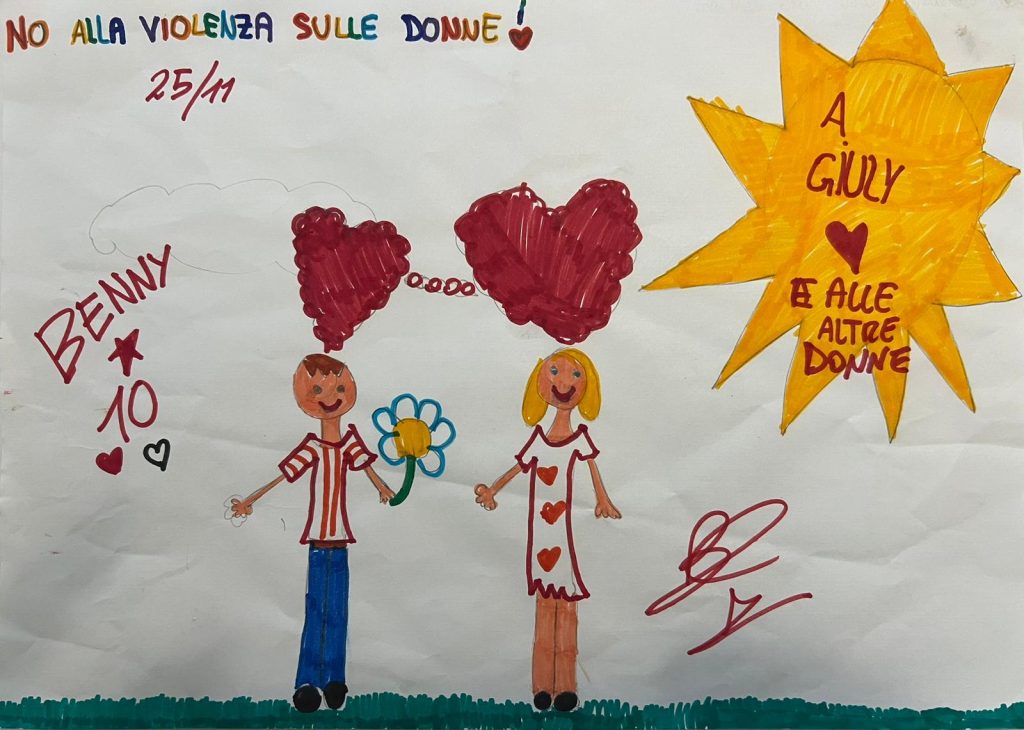 NO ALLA VIOLENZA SULLE DONNE!
25/11
A
GIULY
E ALLE
ALTRE
DONNE
BENNY
10